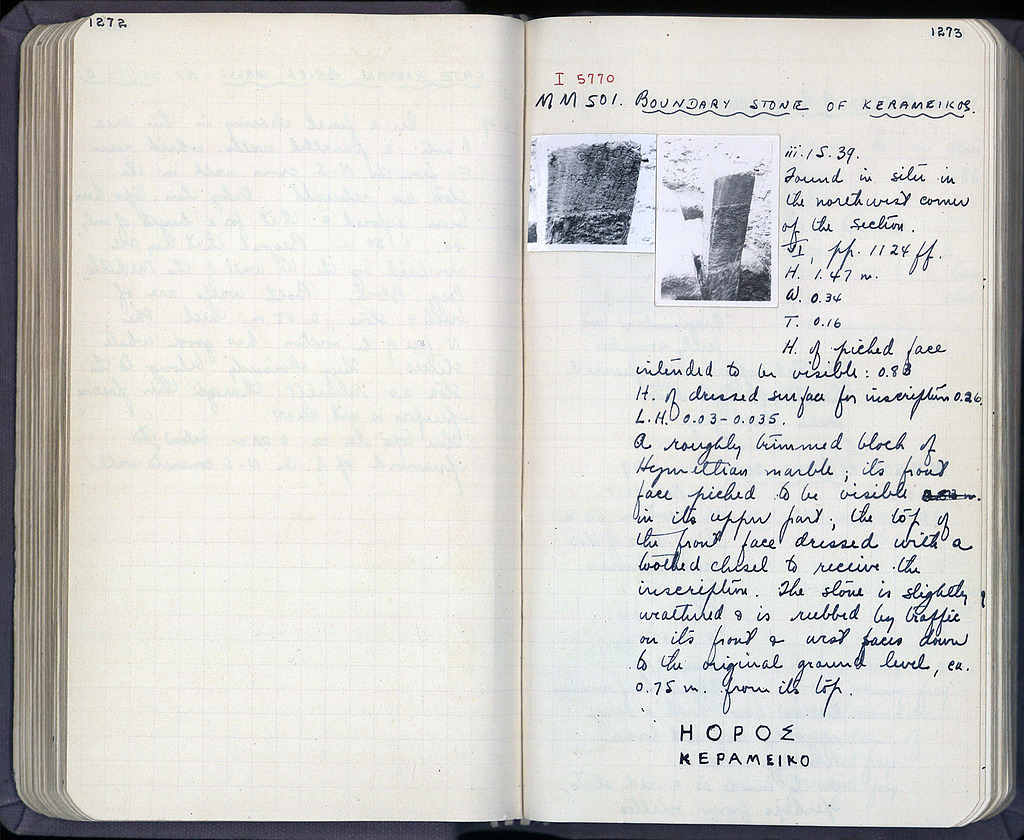 1272
1273
I 5770
MM 501. BOUNDARY STONE OF KERAMEIKOS.
iii.15.39.
Found in situ in
the northwest corner
of the section.
VI, pp. 1124 ff.
H. 1.47 m.
W. 0.34
T. 0.16
H. of picked face
intended to be visible: 0.83
H. of dressed surface for inscription 0.26
L.H. 0.03-0.035.
A roughly trimmed block of
Hymettian marble; its front
face picked to be visible
in its upper part; the top of
the front face dressed with a
toothed chisel to receive the
inscription. The stone is slightly
weathered & is rubbed by traffic
on its front & west faces down
to the original ground level, ca.
0.75 m. from its top.
ΗΟΡΟΣ
ΚΕΡΑΜΕΙΚΟ